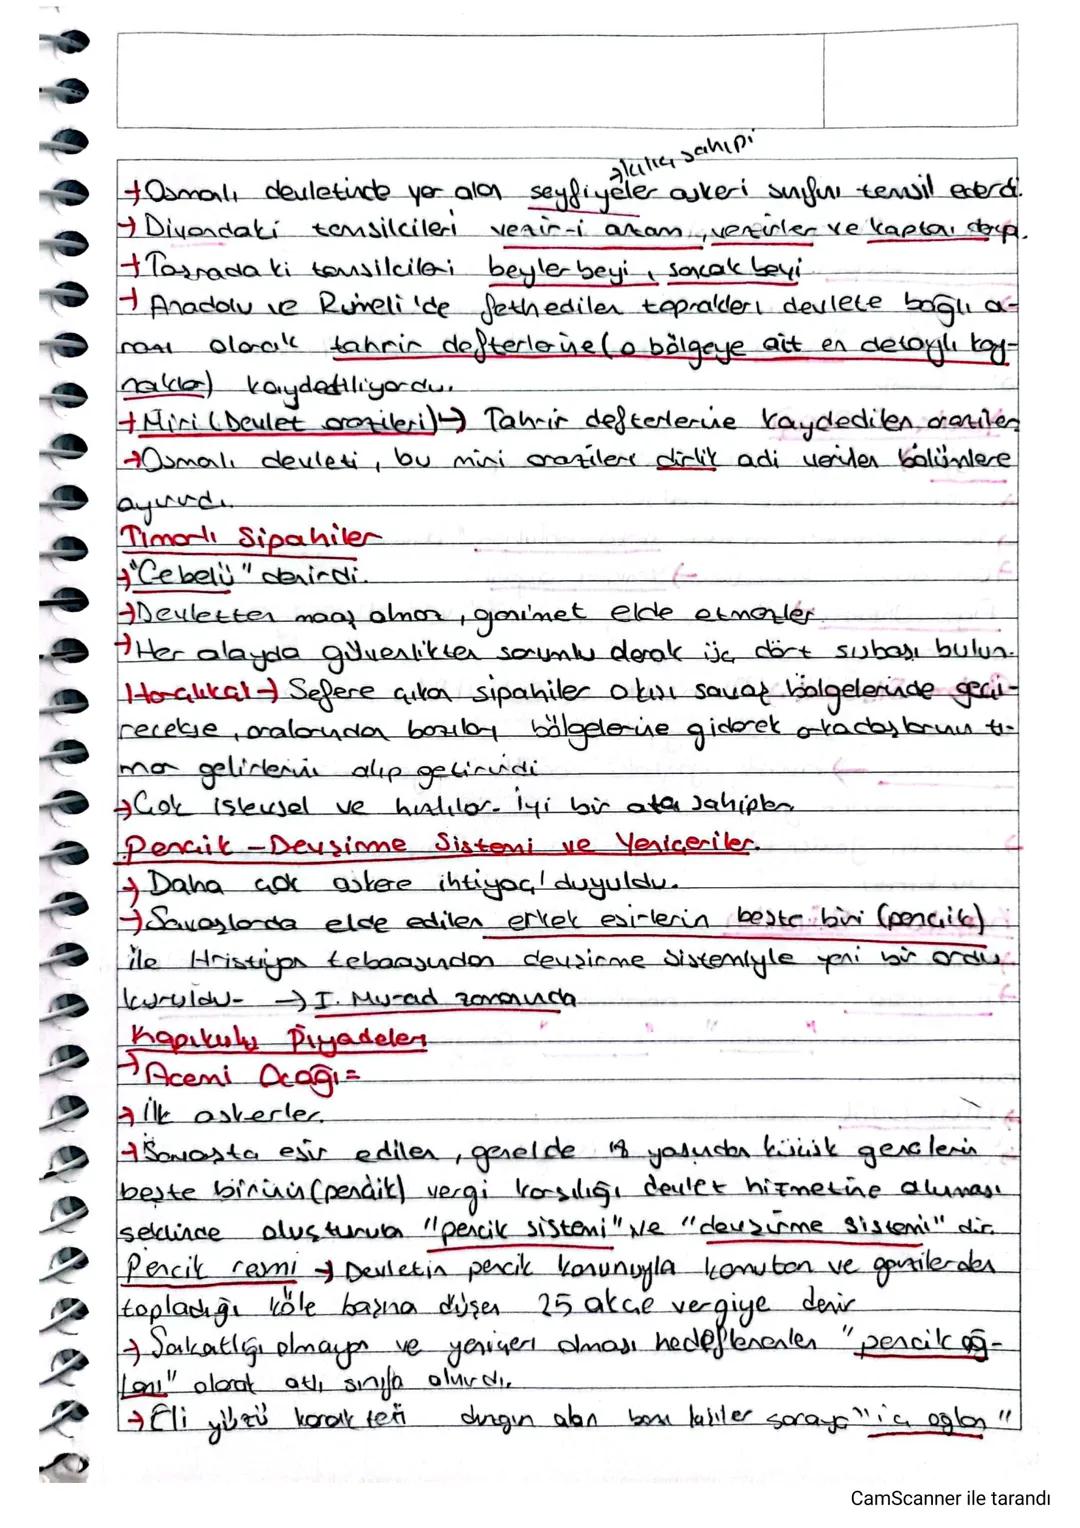 →kılıç sahipi
→Osmanlı devletinde yer alan seyfiyeler askeri sınıfını temsil ederdi.
→Divandaki temsilcileri vezir-i azam, vezirler ve kaptan derya.
→Taşradaki temsilcileri beylerbeyi, sancak beyi
→Anadolu ve Rumeli'de fethedilen toprakları devlete bağlı a-
razi olarak tahrir defterlerine (o bölgeye ait en detaylı kay-
naklar) kaydettiliyordu.
→Miri (Devlet arazileri) → Tahrir defterlerine kaydedilen araziler
→Osmanlı devleti, bu miri arazilere dirlik adi verilen bölümlere
ayırırdı.
Tımarlı Sipahiler
→"Cebelü" denirdi.
→Devletten maaş almaz, ganimet elde etmezler
→Her alayda güvenlikten sorumlu olarak üç dört subaşı bulun.
Haçlıkat → Sefere çıkan sipahiler kışı savaş bölgelerinde geçi-
recekse, aralarından bazıları bölgelerine giderek arkadaşlarının tı-
mar gelirlerini alıp getirirdi
→Çok işlevsel ve hızlılar. İyi bir ata sahipler
Pencik-Devşirme Sistemi ve Yeniçeriler.
→ Daha çok askere ihtiyaç duyuldu.
→ Savaşlarda elde edilen erkek esirlerin beşte biri (pencik)
ile Hristiyan tebaasından devşirme sistemiyle yeni bir ordu
kuruldu- → I. Murad zamanında
Kapıkulu Piyadeler
→ Acemi Ocağı=
→ İlk askerler.
→Savaşta esir edilen, genelde 18 yaşından küçük gençlerin
beşte birinin (pendik) vergi karşılığı devlet hizmetine alınması
şeklinde oluşturulan "pencik sistemi" ve "devşirme sistemi" dir.
Pencik resmi → Devletin pencik kanunuyla komutan ve gazilerden
topladığı köle başına düşen 25 akçe vergiye denir
→ Sakatlığı olmayan ve yeniçeri olması hedeflenenler "pencik oğ-
lanı" olarak atlı sınıfa alınırdı.
→ Eli yüzü karakteri düzgün olan bazı kişiler saraya "iç oğlan"
CamScanner ile tarandı